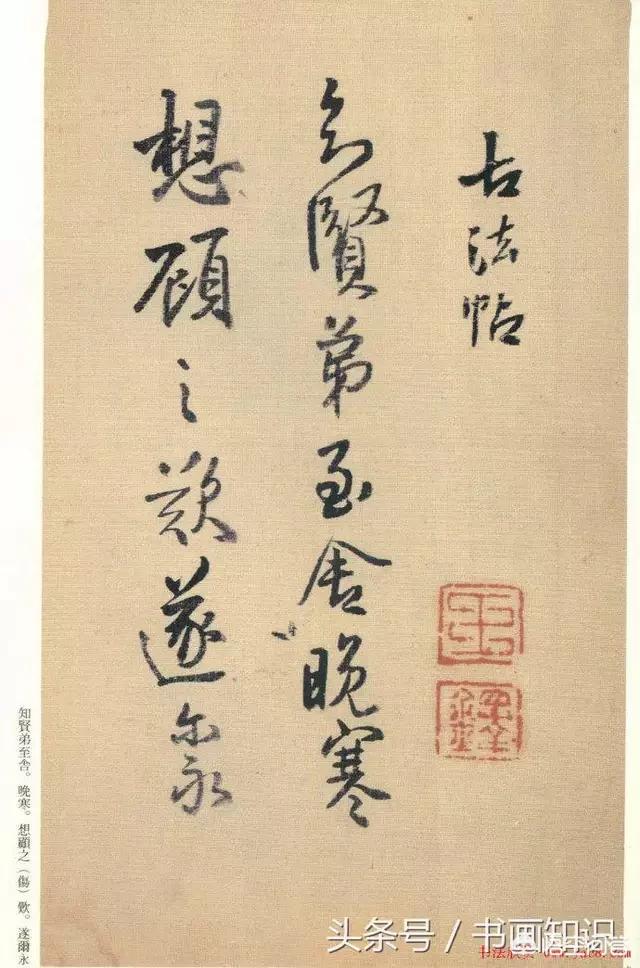 古法帖
知賢弟至舍晚寒
想顧之歎遂尔永
知賢弟至舍。晚寒。想顧之（傷）歎。遂爾永
头条号／书画知识
王鐸